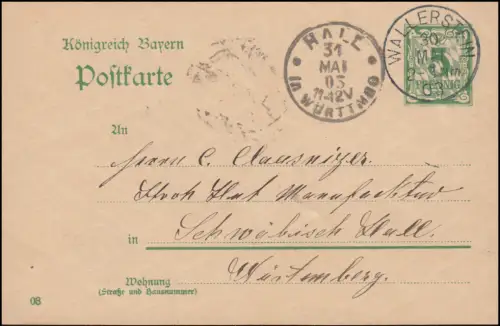 Königreich Bayern
Postkarte
HALL
31
MAI
03
11-12V
in WÜRTTMBG
WALLERSTEIN
30
5
PFENNIG
An
Herrn C. Clausnizer.
Stroh Hut Manufaktur
in Schwäbisch Hall.
Würtemberg.
Wohnung
(Straße und Hausnummer)
08